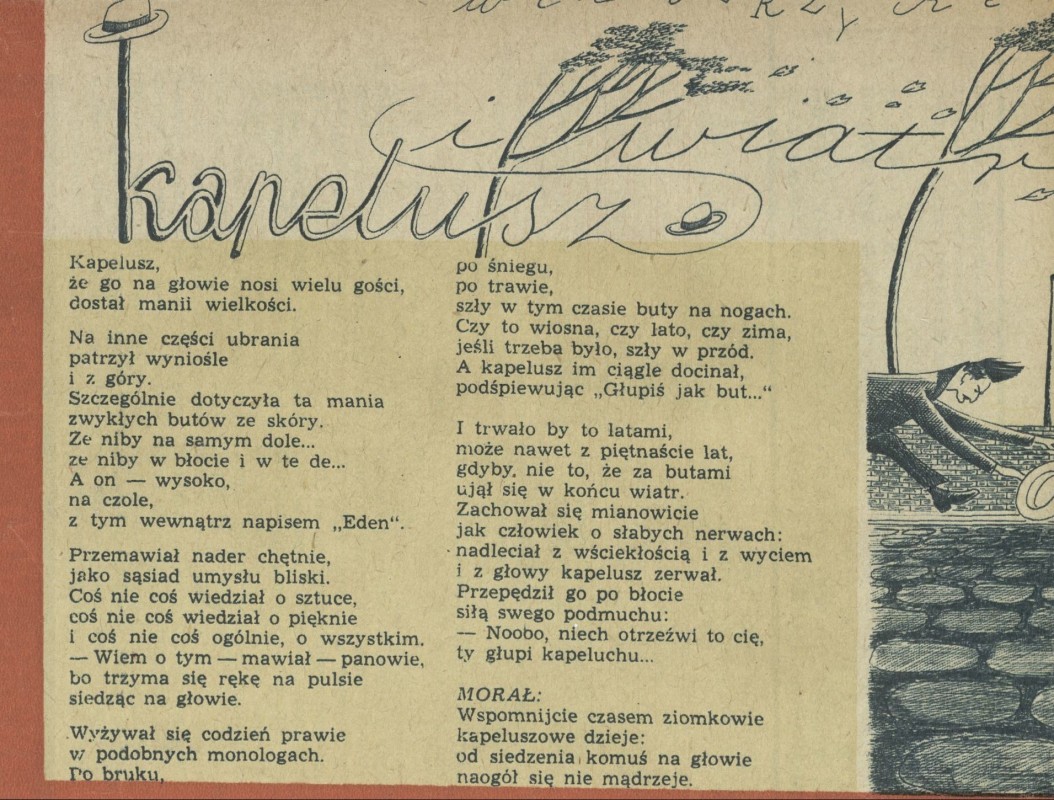 kapelusz
i wiatr
Kapelusz,
że go na głowie nosi wielu gości,
dostał manii wielkości.
Na inne części ubrania
patrzył wyniośle
i z góry.
Szczególnie dotyczyła ta mania
zwykłych butów ze skóry.
Że niby na samym dole...
że niby w błocie i w te de...
A on — wysoko,
na czole,
z tym wewnątrz napisem „Eden“.
Przemawiał nader chętnie,
jako sąsiad umysłu bliski.
Coś nie coś wiedział o sztuce,
coś nie coś wiedział o pięknie
i coś nie coś ogólnie, o wszystkim.
— Wiem o tym — mawiał — panowie,
bo trzyma się rękę na pulsie
siedząc na głowie.
Wyżywał się codzień prawie
w podobnych monologach.
Po bruku,
po śniegu,
po trawie,
szły w tym czasie buty na nogach.
Czy to wiosna, czy lato, czy zima,
jeśli trzeba było, szły w przód.
A kapelusz im ciągle docinał,
podśpiewując „Głupiś jak but...“
I trwało by to latami,
może nawet z piętnaście lat,
gdyby nie to, że za butami
ujął się w końcu wiatr.
Zachował się mianowicie
jak człowiek o słabych nerwach:
nadleciał z wściekłością i z wyciem
i z głowy kapelusz zerwał.
Przepędził go po błocie
siłą swego podmuchu:
— Noobo, niech otrzeźwi to cię,
ty głupi kapeluchu...
MORAŁ:
Wspomnijcie czasem ziomkowie
kapeluszowe dzieje:
od siedzenia komuś na głowie
naogół się nie mądrzeje.